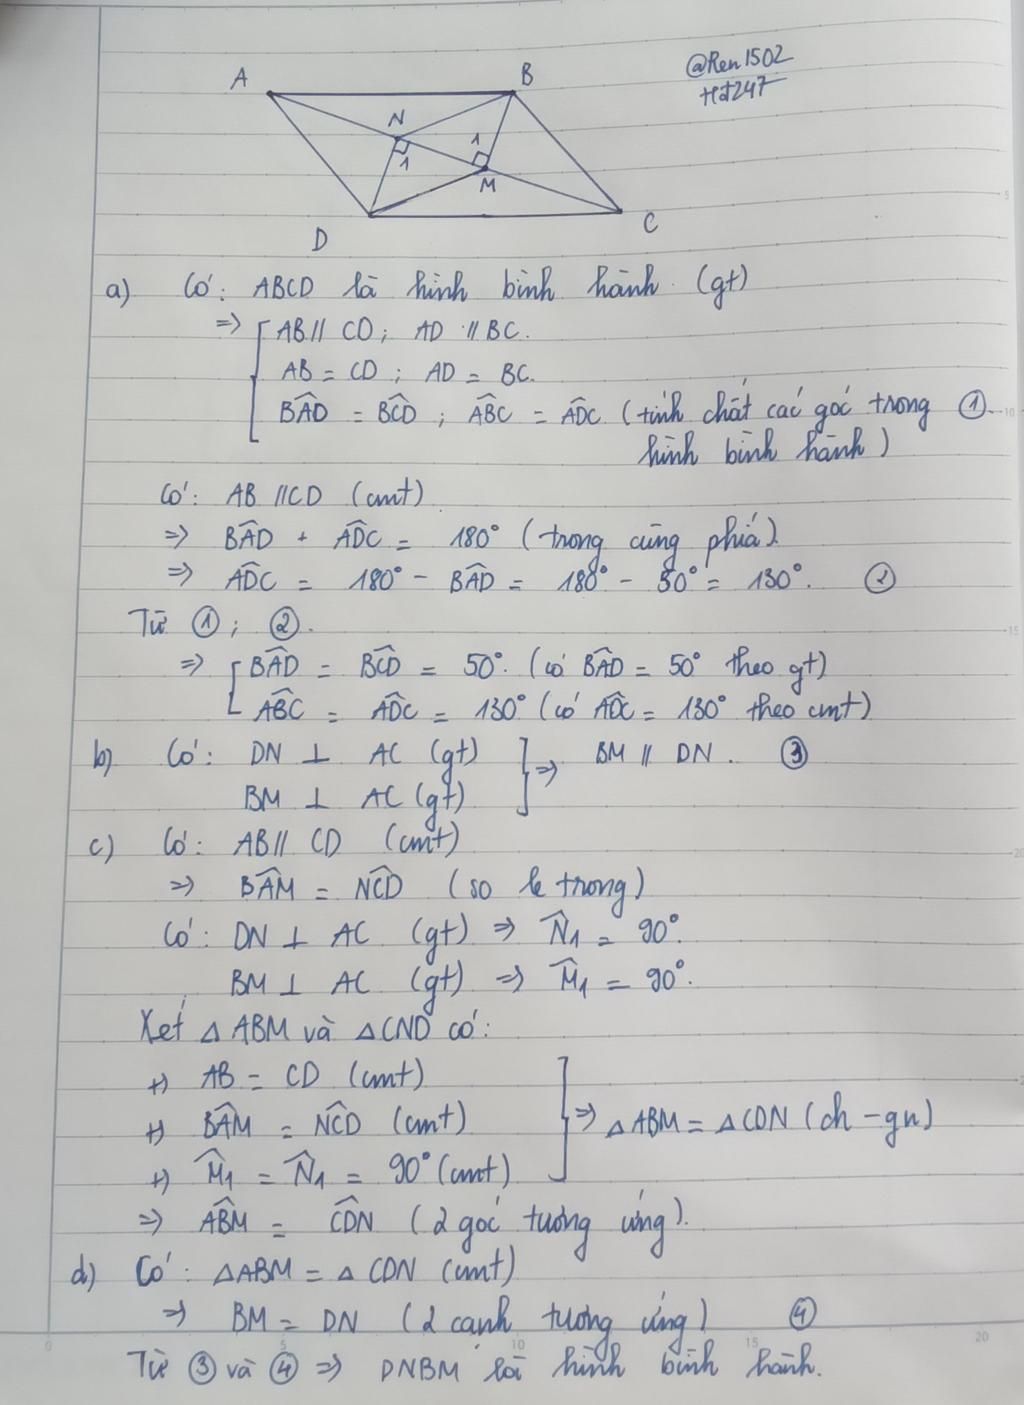 @Ren1502
Hđ247
A
B
N
1
1
M
D
C
a) Có: ABCD là hình bình hành (gt)
=> [ AB // CD; AD // BC.
AB = CD ; AD = BC.
BÂD = BĈD ; AB̂C = AD̂C (tính chất các góc trong ①
hình bình hành)
Có: AB // CD (cmt)
=> BÂD + AD̂C = 180° (trong cùng phía)
=> AD̂C = 180° - BÂD = 180° - 50° = 130°. ②
Từ ①; ②.
=> [ BÂD = BĈD = 50°. (có BÂD = 50° theo gt)
AB̂C = AD̂C = 130° (có AD̂C = 130° theo cmt)
b) Có: DN ⊥ AC (gt) } => BM // DN. ③
BM ⊥ AC (gt)
c) Có: AB // CD (cmt)
=> BÂM = NĈD (so le trong)
Có: DN ⊥ AC (gt) => N̂1 = 90°.
BM ⊥ AC (gt) => M̂1 = 90°.
Xét △ABM và △CND có:
+) AB = CD (cmt)
+) BÂM = NĈD (cmt) ] => △ABM = △CDN (ch - gn)
+) M̂1 = N̂1 = 90° (cmt)
=> AB̂M = CD̂N (2 góc tương ứng).
d) Có: △ABM = △CDN (cmt)
=> BM = DN (2 cạnh tương ứng) ④
Từ ③ và ④ => DNBM là hình bình hành.